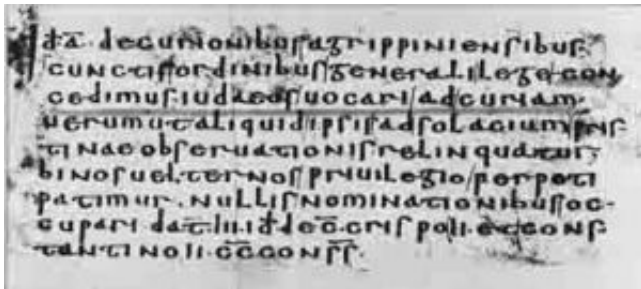 ID A. decurionibus agrippiniensibus.
cunctis ordinibus generali lege con
cedimus iudaeos uocari ad curiam.
uerum ut aliquid ipsis ad solacium pris
tinae obseruationis relinquatur
binos uel ternos priuilegio perpeti
patimur. nullis nominationibus oc
cupari dat. III. id dec. crispo II. et cons
tantino II. CC conss.